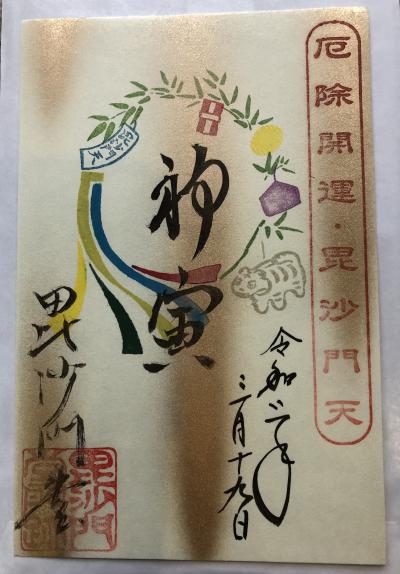 厄除開運・毘沙門天
毘沙門天
初寅
令和二年
三月十九日
毘沙門堂